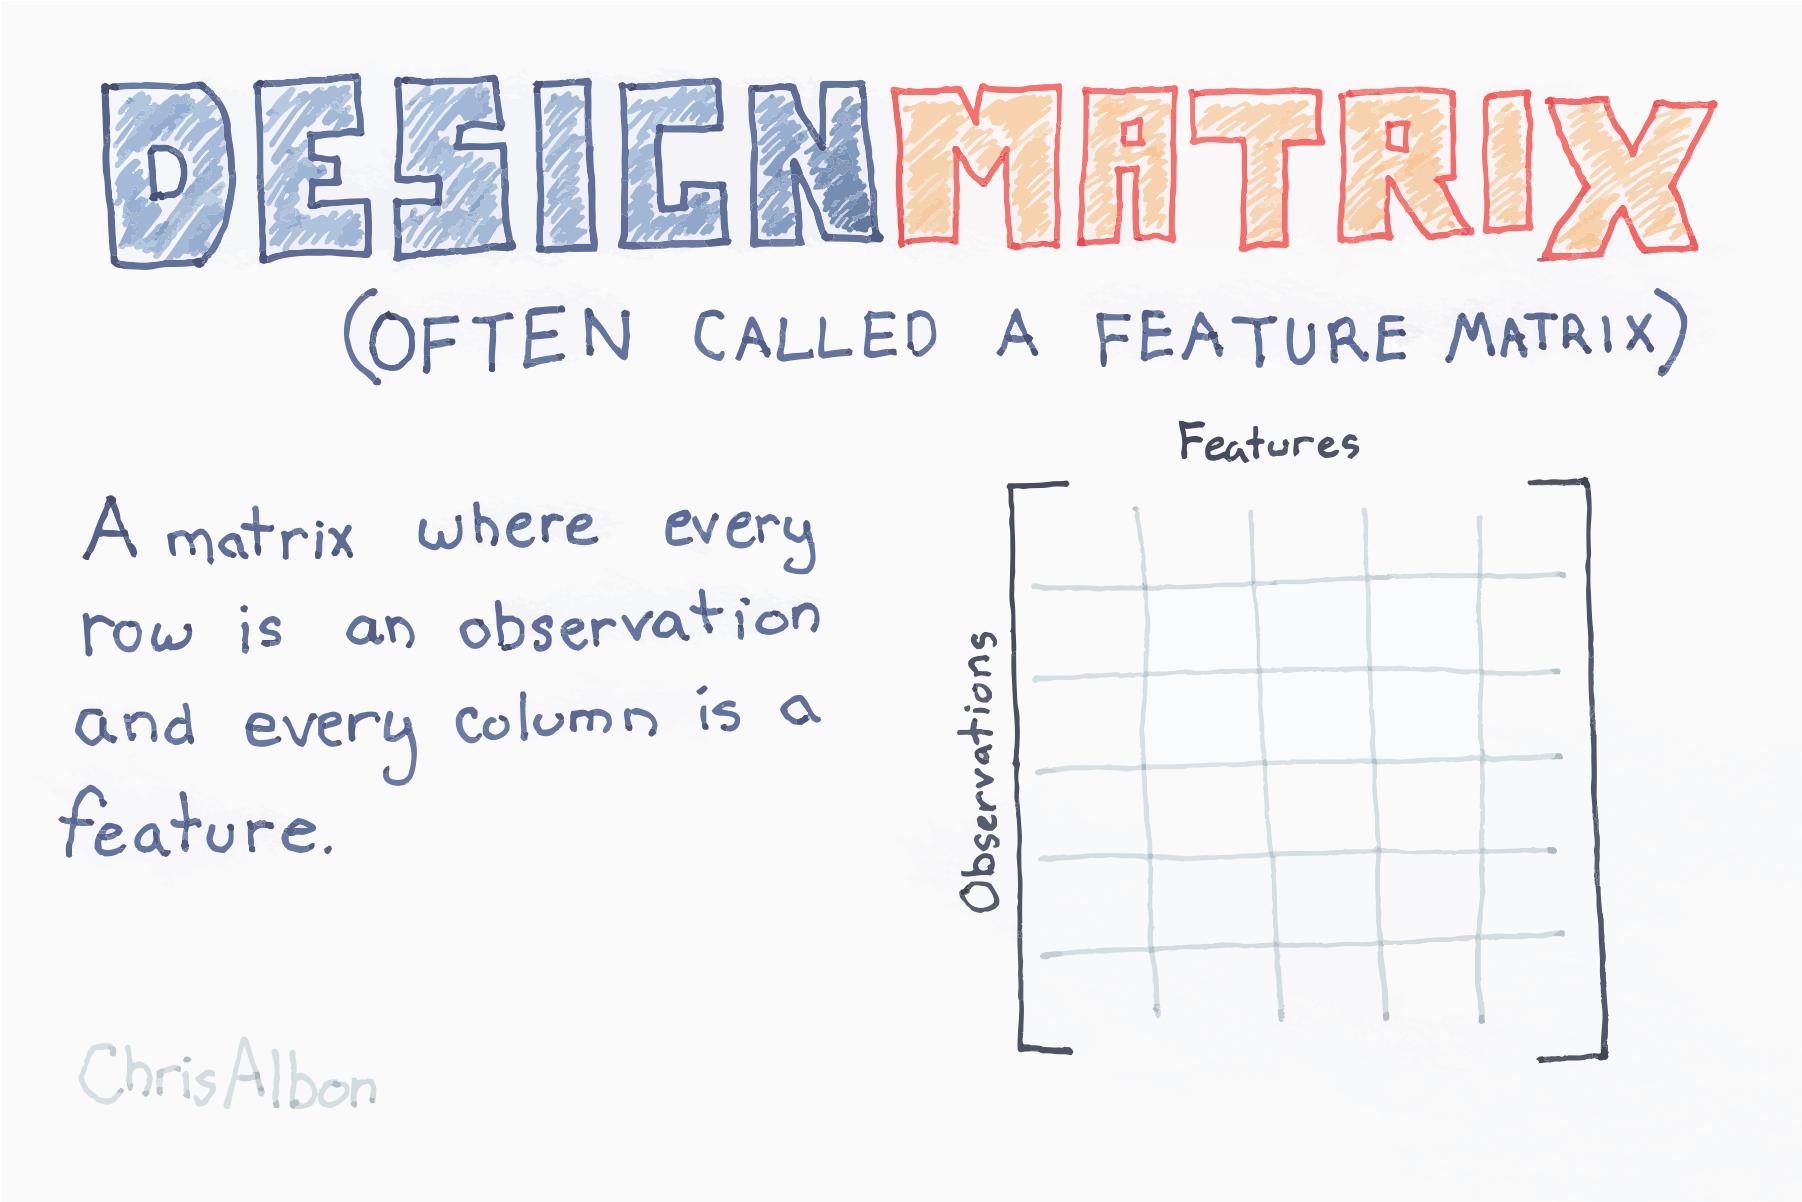 DESIGN MATRIX
(OFTEN CALLED A FEATURE MATRIX)
A matrix where every
row is an observation
and every column is a
feature.
Features
Observations
ChrisAlbon